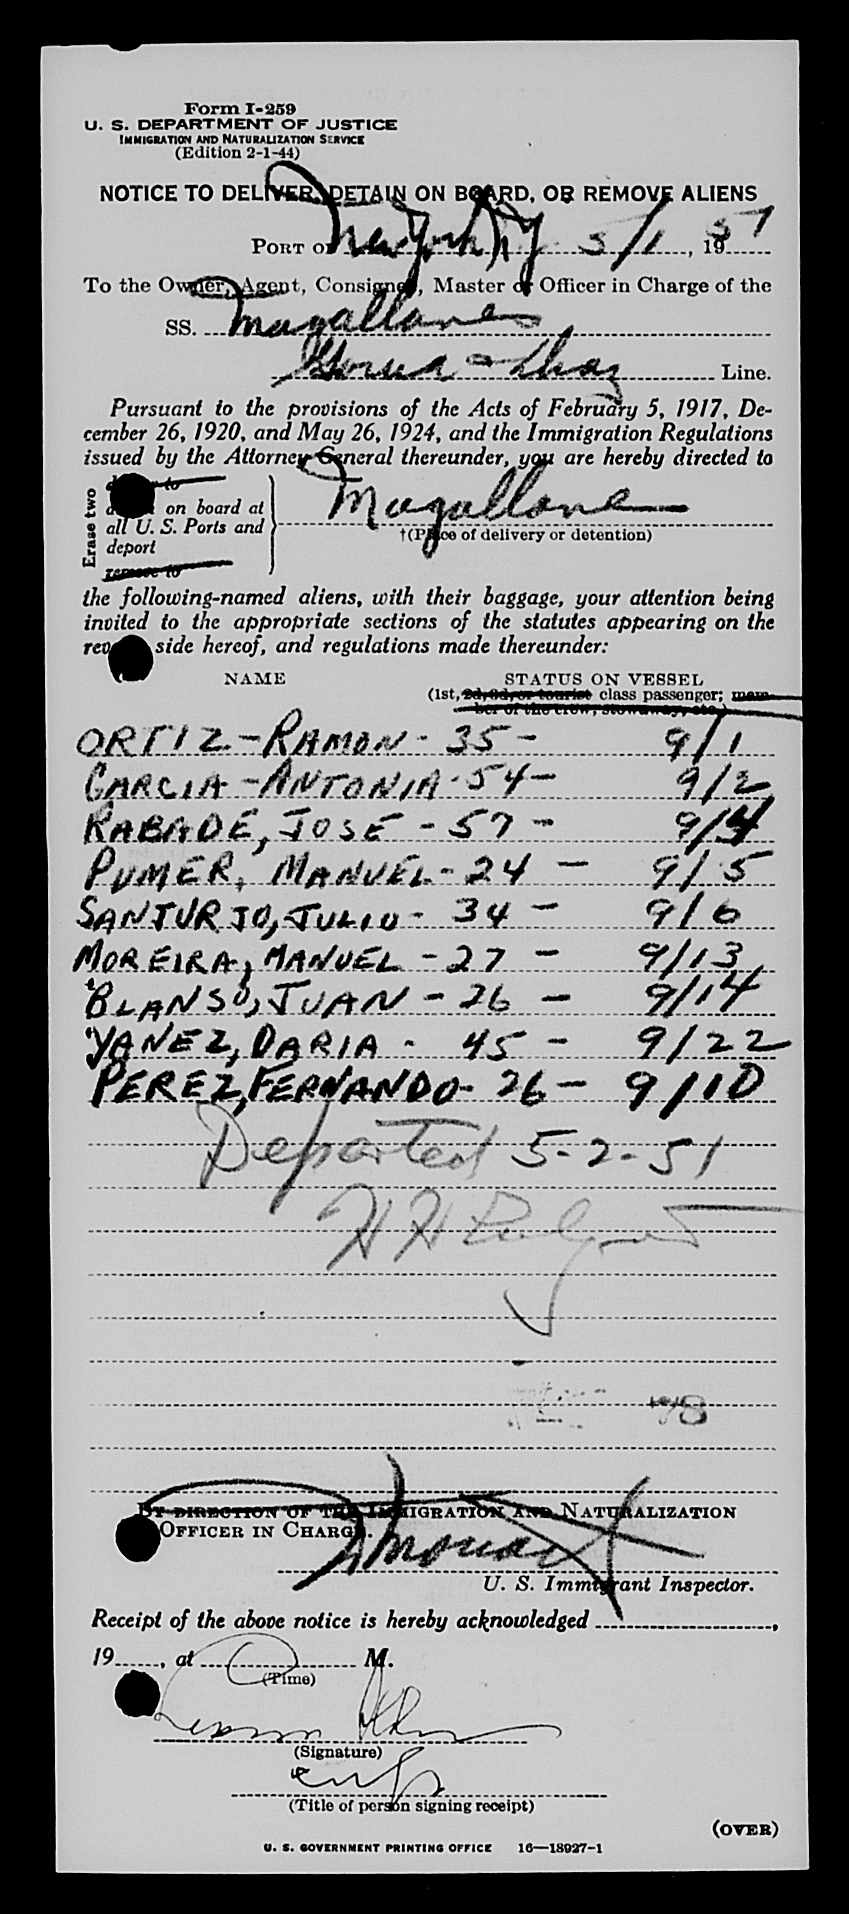 Form I-259
U. S. DEPARTMENT OF JUSTICE
IMMIGRATION AND NATURALIZATION SERVICE
(Edition 2-1-44)
NOTICE TO DELIVER, DETAIN ON BOARD, OR REMOVE ALIENS
PORT OF New York, NY 5/1, 1951
To the Owner, Agent, Consignee, Master or Officer in Charge of the
SS. Magallanes
Garcia & Diaz Line.
Pursuant to the provisions of the Acts of February 5, 1917, De-
cember 26, 1920, and May 26, 1924, and the Immigration Regulations
issued by the Attorney General thereunder, you are hereby directed to
Erase two
on board at
all U. S. Ports and
deport
remove to
Magallanes
†(Place of delivery or detention)
the following-named aliens, with their baggage, your attention being
invited to the appropriate sections of the statutes appearing on the
side hereof, and regulations made thereunder:
NAME STATUS ON VESSEL
(1st, 2d, 3d, or tourist class passenger; mem-
ber of the crew, stowaway, etc.)
ORTIZ - RAMON - 35 - 9/1
GARCIA - ANTONIA - 54 - 9/2
RABADE, JOSE - 57 - 9/4
PUMER, MANUEL - 24 - 9/5
SANTURJO, JULIO - 34 - 9/6
MOREIRA, MANUEL - 27 - 9/13
BLANSO, JUAN - 26 - 9/14
YANEZ, DARIA - 45 - 9/22
PEREZ, FERNANDO - 26 - 9/10
Departed 5-2-51
H H
BY DIRECTION OF THE IMMIGRATION AND NATURALIZATION
OFFICER IN CHARGE.
U. S. Immigrant Inspector.
Receipt of the above notice is hereby acknowledged ,
19 , at M.
(Time)
(Signature)
(Title of person signing receipt)
(OVER)
U. S. GOVERNMENT PRINTING OFFICE 16—18927-1